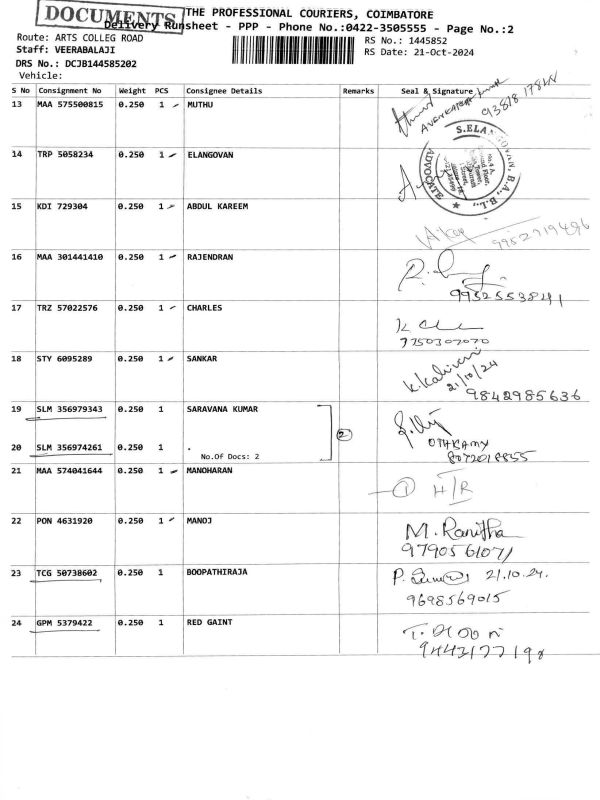 DOCUMENTS
THE PROFESSIONAL COURIERS, COIMBATORE
Delivery Runsheet - PPP - Phone No.:0422-3505555 - Page No.:2
Route: ARTS COLLEG ROAD
RS No.: 1445852
Staff: VEERABALAJI
RS Date: 21-Oct-2024
DRS No.: DCJB144585202
Vehicle:
S No Consignment No Weight PCS Consignee Details Remarks Seal & Signature
13 MAA 575500815 0.250 1 MUTHU
93818 178
S.ELANGOVAN, B.A., B.L.,
ADVOCATE
14 TRP 5058234 0.250 1 ELANGOVAN
15 KDI 729304 0.250 1 ABDUL KAREEM
9952919496
16 MAA 301441410 0.250 1 RAJENDRAN
9952553841
17 TRZ 57022576 0.250 1 CHARLES
7750307070
18 STY 6095289 0.250 1 SANKAR
21/10/24
9842985636
19 SLM 356979343 0.250 1 SARAVANA KUMAR
2
20 SLM 356974261 0.250 1 .
No.Of Docs: 2
8072018855
21 MAA 574041644 0.250 1 MANOHARAN
1 H/R
22 PON 4631920 0.250 1 MANOJ
M. Ranitha
9790561071
23 TCG 50738602 0.250 1 BOOPATHIRAJA
P. 21.10.24.
9698569015
24 GPM 5379422 0.250 1 RED GAINT